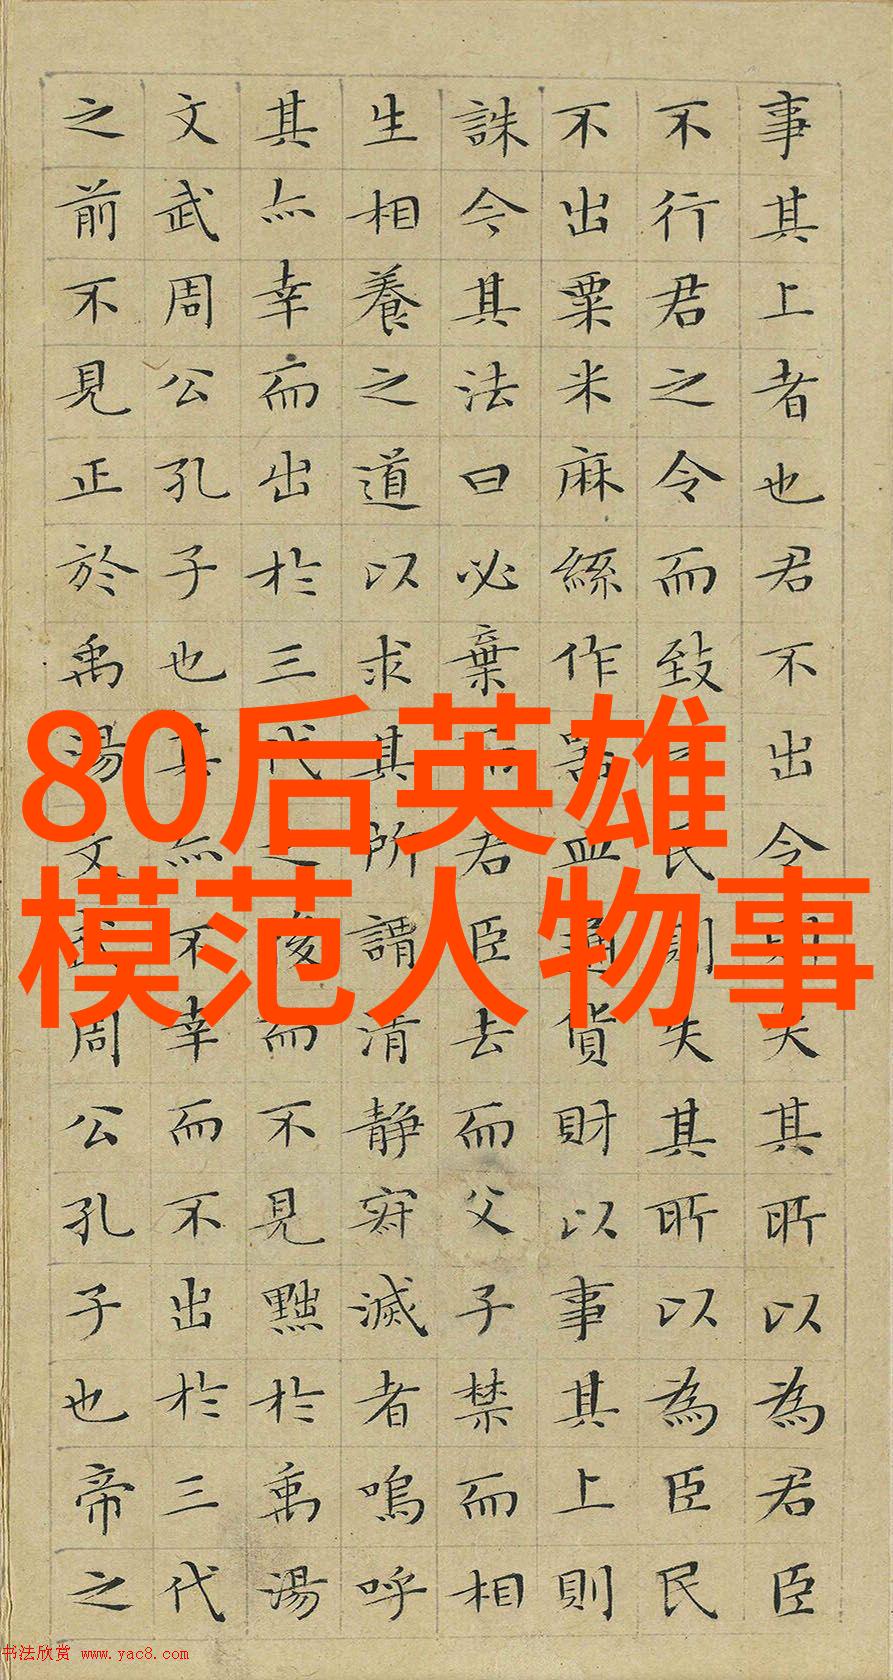 事其上者也君不出令則失其所以為君臣
不行君之令而致民失其所以為臣民
不出粟米麻絲作器皿通貨財以事其上則
誅今其法曰必棄而君臣去而父子禁而相
生相養之道以求其所謂清靜寂滅者嗚呼
其亦幸而出於三代之後而不見黜於禹湯
文武周公孔子也其亦不幸而不出於三代
之前不見正於禹湯文武周公孔子也帝之
80后英雄
模范人物事
书法欣赏 www.yac8.com